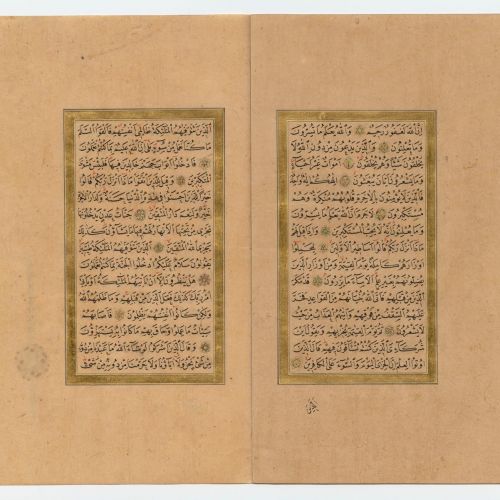 إن الله لغفور رحيم والله يعلم ما تسرون
وما تعلنون والذين يدعون من دون الله لا
يخلقون شيئا وهم يخلقون أموات غير أحياء
وما يشعرون أيان يبعثون إلهكم إله واحد
فالذين لا يؤمنون بالآخرة قلوبهم منكرة وهم
مستكبرون لا جرم أن الله يعلم ما يسرون
وما يعلنون إنه لا يحب المستكبرين وإذا قيل لهم
ماذا أنزل ربكم قالوا أساطير الأولين ليحملوا
أوزارهم كاملة يوم القيمة ومن أوزار الذين
يضلونهم بغير علم ألا ساء ما يزرون قد مكر
الذين من قبلهم فأتى الله بنيانهم من القواعد فخر
عليهم السقف من فوقهم وأتيهم العذاب من حيث
لا يشعرون ثم يوم القيمة يخزيهم ويقول أين
شركائي الذين كنتم تشاقون فيهم قال الذين
أوتوا العلم إن الخزي اليوم والسوء على الكافرين
الذين
الذين تتوفيهم الملئكة ظالمي أنفسهم فألقوا السلم
ما كنا نعمل من سوء بلى إن الله عليم بما كنتم تعملون
فادخلوا أبواب جهنم خالدين فيها فلبئس مثوى
المتكبرين وقيل للذين اتقوا ماذا أنزل ربكم قالوا
خيرا للذين أحسنوا في هذه الدنيا حسنة ولدار الآخرة
خير ولنعم دار المتقين جنات عدن يدخلونها
تجري من تحتها الأنهار لهم فيها ما يشاؤن كذلك
يجزي الله المتقين الذين تتوفيهم الملئكة طيبين
يقولون سلام عليكم ادخلوا الجنة بما كنتم تعملون
هل ينظرون إلا أن تأتيهم الملئكة أو يأتي
أمر ربك كذلك فعل الذين من قبلهم وما ظلمهم الله
ولكن كانوا أنفسهم يظلمون فأصابهم
سيئات ما عملوا وحاق بهم ما كانوا به يستهزؤن
وقال الذين أشركوا لو شاء الله ما عبدنا من دونه
من شيء نحن ولا آباؤنا ولا حرمنا من دونه من شيء